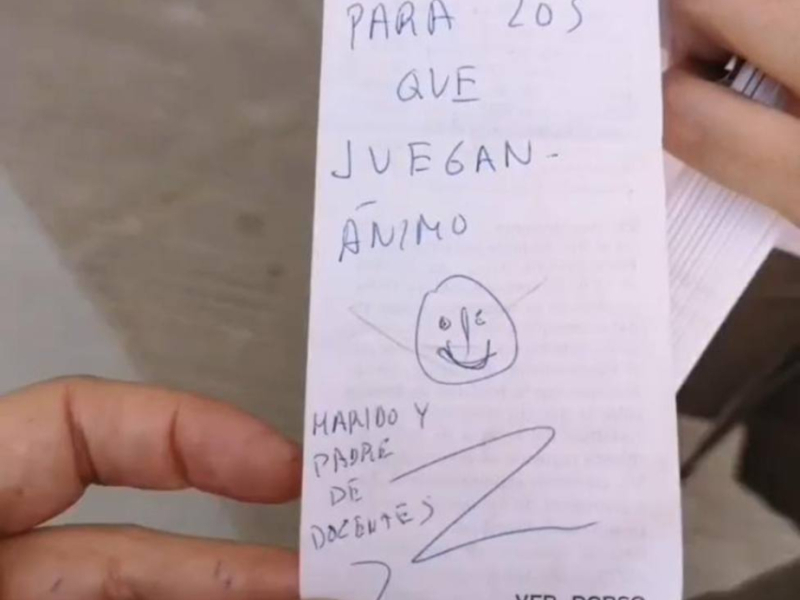 PARA LOS
QUE
JUEGAN-
ÁNIMO
MARIDO Y
PADRE
DE
DOCENTES
VER DORSO